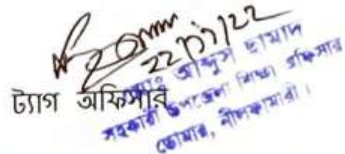 22/11/22
ট্যাগ অফিসার
মোঃ আব্দুস ছামাদ
সহকারী উপজেলা শিক্ষা অফিসার
ডোমার, নীলফামারী।